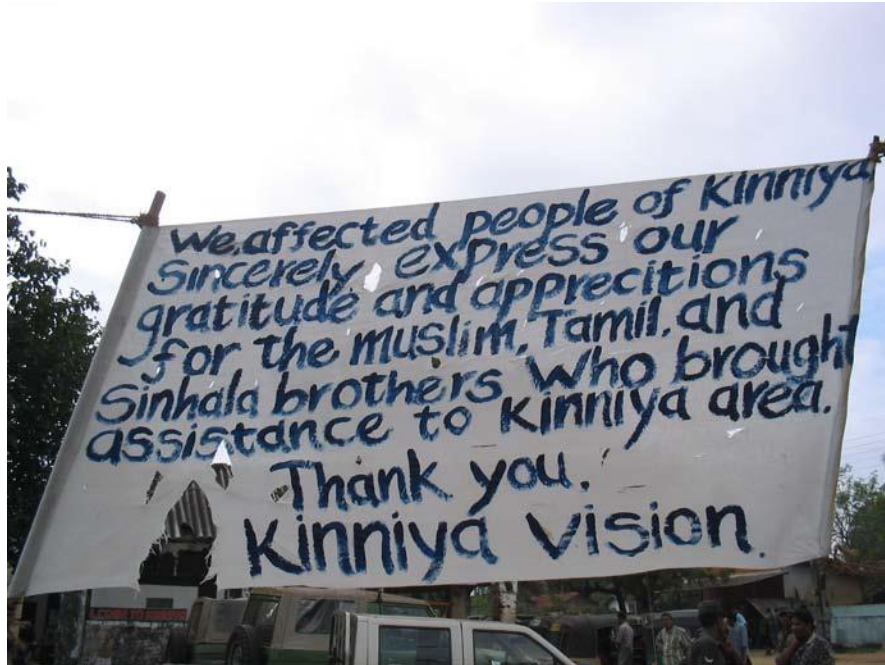 We, affected people of Kinniya
Sincerely express our
gratitude and apprecitions
for the muslim, Tamil, and
Sinhala brothers who brought
assistance to Kinniya area.
Thank you.
Kinniya Vision.